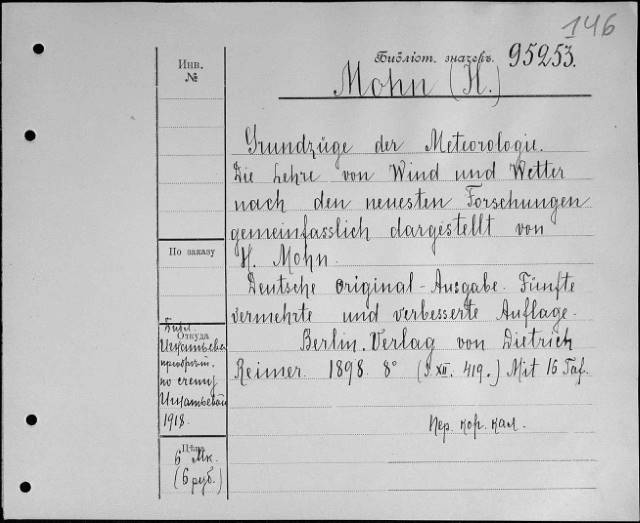 146
Инв.
№
Библіот. значокъ. 95253.
Mohn (H.)
Grundzüge der Meteorologie.
Die Lehre von Wind und Wetter
nach den neuesten Forschungen
gemeinfasslich dargestellt von
H. Mohn.
По заказу
Deutsche Original-Ausgabe. Fünfte
vermehrte und verbesserte Auflage.
Berlin. Verlag von Dietrich
Reimer. 1898. 8° (S. XII. 419.) Mit 16 Taf.
Откуда
Библ.
Игнатьева
по счету
Игнатьевой
1918.
Пер. кор. кал.
Цѣна
6 Мк.
(6 руб.)